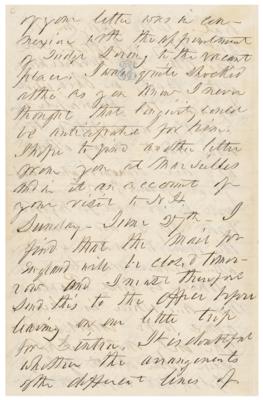 of your letter was in con-
nexion with the appointment
of Judge Loring to the vacant
place. I was quite shocked
at it as you know I never
thought that longevity could
be anticipated for him.
I hope to find another letter
from you at Marseilles
and in it an account of
your visit to N. H.
Sunday - June 27th - I
find that the mail for
England will be closed tomor-
row and I must therefore
send this to the Office before
leaving on our little trip
for Cintra. It is doubtful
whether the arrangements
of the different lines of